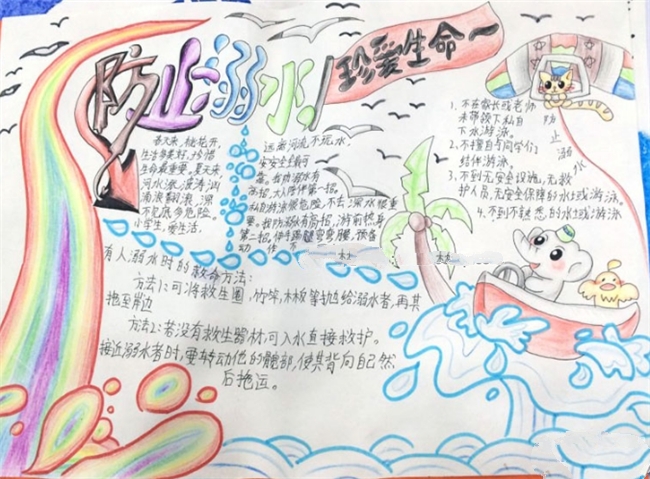 防止溺水
珍爱生命
春天来,桃花开,
生活美好,珍惜
生命最重要。夏天来,
河水涨,波涛汹
涌浪翻滚,深
不见底危险,
小学生,爱生活,
远离河流,不玩水,
安安全全
我。我防溺水有
高招,大人陪伴第一招。
私自游泳很危险,不去深水很重
要。我防溺水有高招,游前热身
第二招,伸伸腿弯弯腰,预备
动作不
1、不在家长或老师
未带领下私自
下水游泳。
2、不擅自与同学们
结伴游泳。
3、不到无安全设施,无救
护人员,无安全保障的水域游泳。
4、不到不熟悉的水域游泳
防止溺水
有人溺水时的救命方法:
方法1:可将救生圈,竹竿,木板等抛给溺水者,再其
拖至岸边
方法2:若没有救生器材,可入水直接救护。
接近溺水者时,要转动他的髋部,使其背向自己然
后拖运。